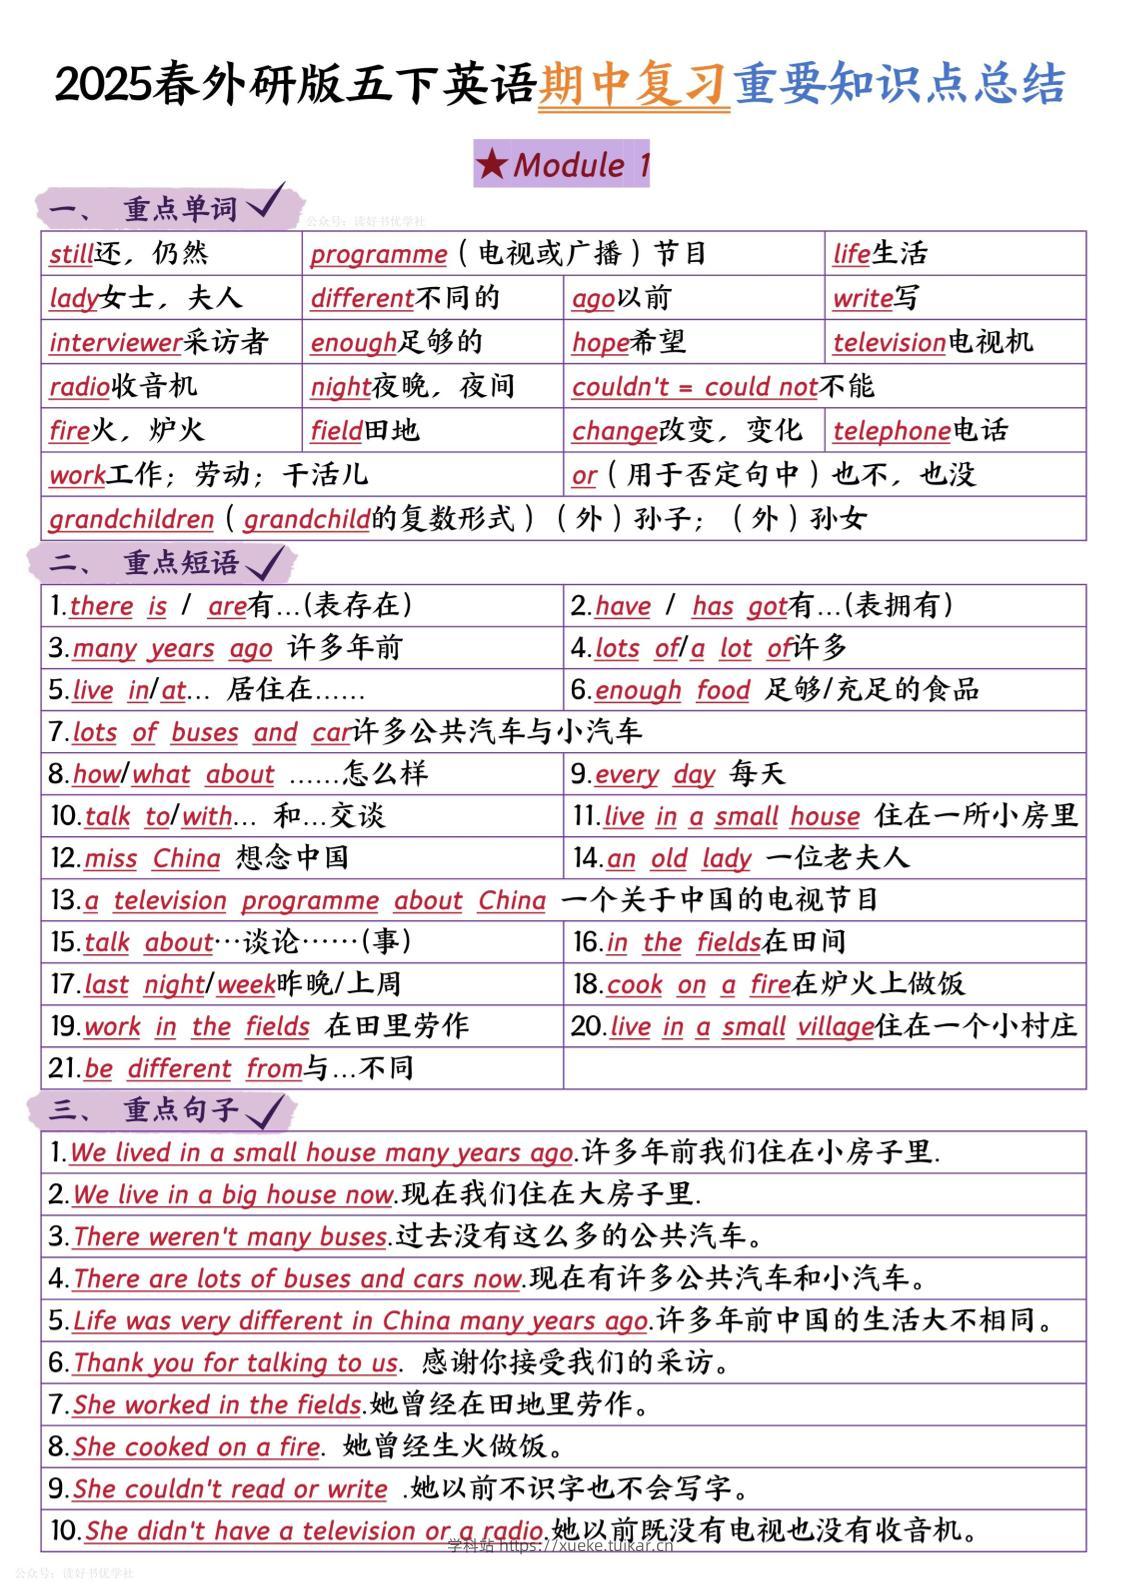 2025春外研版五下英语期中复习重要知识点总结
★Module 1
一、 重点单词
公众号：读好书优学社
still还，仍然 programme（电视或广播）节目 life生活
lady女士，夫人 different不同的 ago以前 write写
interviewer采访者 enough足够的 hope希望 television电视机
radio收音机 night夜晚，夜间 couldn't = could not不能
fire火，炉火 field田地 change改变，变化 telephone电话
work工作；劳动；干活儿 or（用于否定句中）也不，也没
grandchildren（grandchild的复数形式）（外）孙子；（外）孙女
二、 重点短语
1.there is / are有…(表存在) 2.have / has got有…(表拥有)
3.many years ago 许多年前 4.lots of/a lot of许多
5.live in/at… 居住在…… 6.enough food 足够/充足的食品
7.lots of buses and car许多公共汽车与小汽车
8.how/what about ……怎么样 9.every day 每天
10.talk to/with… 和…交谈 11.live in a small house 住在一所小房里
12.miss China 想念中国 14.an old lady 一位老夫人
13.a television programme about China 一个关于中国的电视节目
15.talk about…谈论……(事) 16.in the fields在田间
17.last night/week昨晚/上周 18.cook on a fire在炉火上做饭
19.work in the fields 在田里劳作 20.live in a small village住在一个小村庄
21.be different from与…不同
三、 重点句子
1.We lived in a small house many years ago.许多年前我们住在小房子里.
2.We live in a big house now.现在我们住在大房子里.
3.There weren't many buses.过去没有这么多的公共汽车。
4.There are lots of buses and cars now.现在有许多公共汽车和小汽车。
5.Life was very different in China many years ago.许多年前中国的生活大不相同。
6.Thank you for talking to us. 感谢你接受我们的采访。
7.She worked in the fields.她曾经在田地里劳作。
8.She cooked on a fire. 她曾经生火做饭。
9.She couldn't read or write .她以前不识字也不会写字。
10.She didn't have a television or a radio.她以前既没有电视也没有收音机。
学科站 https://xueke.tuikar.cn
公众号：读好书优学社